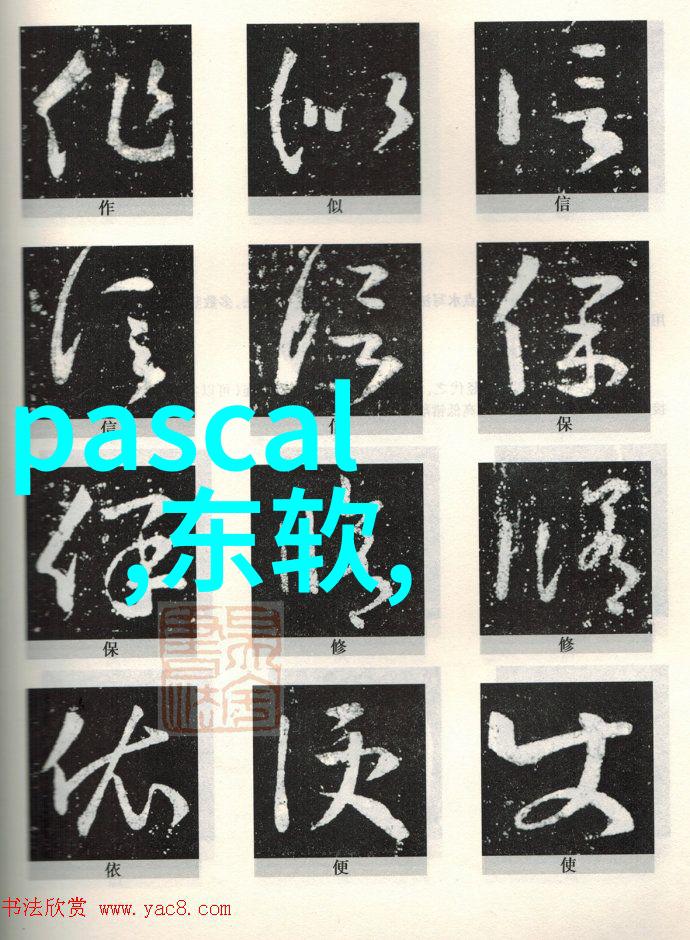 作 似 信
信 信 保
pascal
,东软,
保 修 修
依 便 使
书法欣赏 www.yac8.com